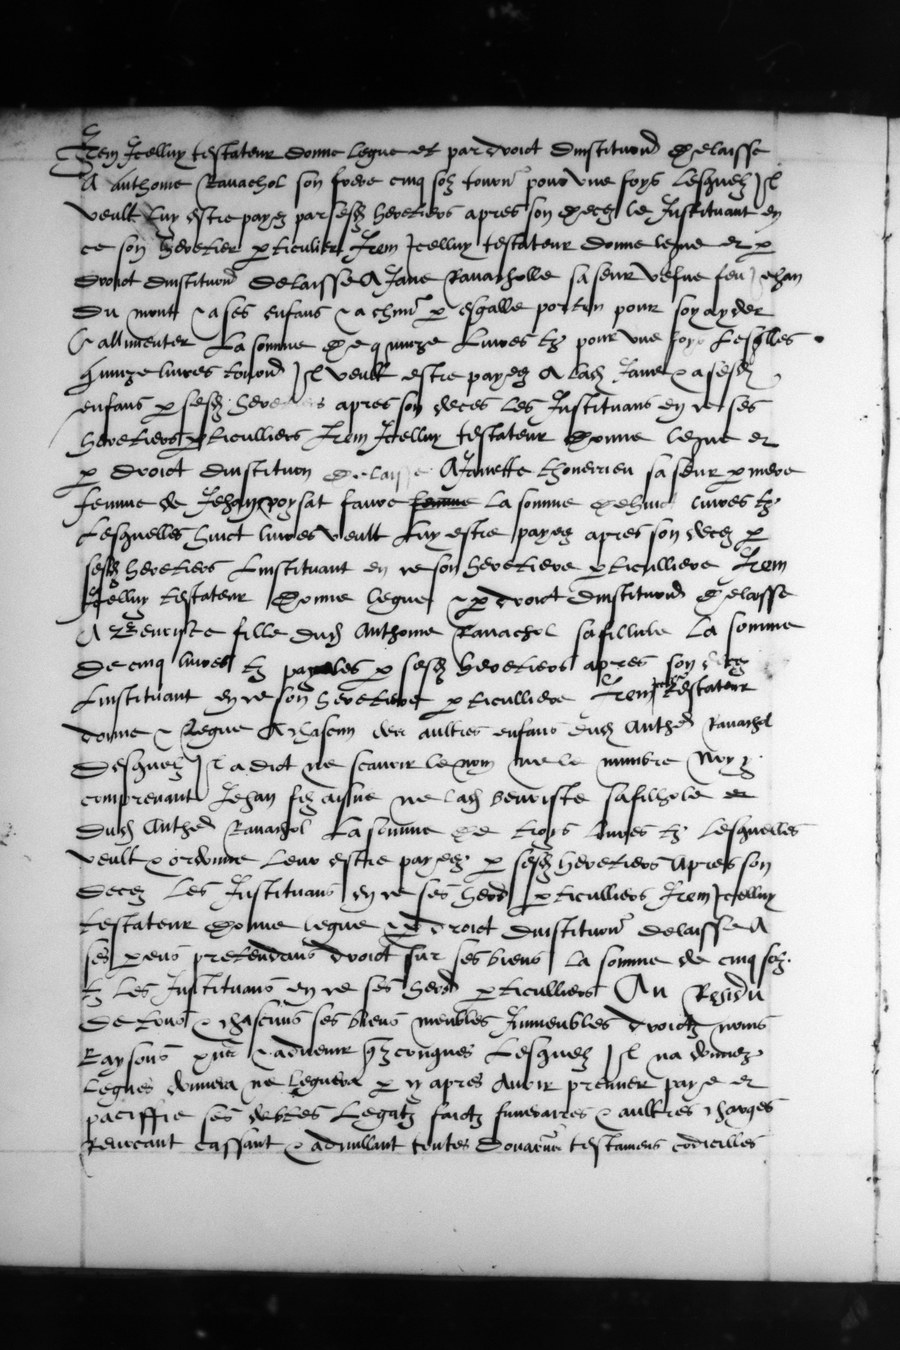 Item Icelluy testateur donne legue et par droict dinstitucion delaisse
A Anthoine Ravachol son frere cinq solz tourn pour une foys Lesquelz Il
veult luy estre payez par sesd heretiers apres son decez le Instituant en
ce son heretier particulier Item Icelluy testateur donne legue et p
droict dinstitucion delaisse A Jane Ravacholle sa seur vefve feu Jehan
du mont & a ses enfans & a chun p esgalle portion pour soy ayder
& alimenter La somme de quinze Livres tz pour une foys Lesqlles
quinze livres tourn Il veult estre payez A lad Jane & a sesd
enfans p sesd heretiers apres son deces Les Instituans en ce ses
heretiers pticulliers Item Icelluy testateur donne legue et
p droict dinstitution delaisse A Janette sa seur p mere
femme de Jehan faure femme La somme de huict livres tz
Lesquelles huict livres veult luy estre payez apres son decez p
sesd heretiers Linstituant en ce son heretiere pticulliere Item
Icelluy testateur donne legue & p droict dinstitucion delaisse
A Benoiste fille dud Anthoine Ravachol sa fillule La somme
de cinq livres tz payables p sesd heretiers apres son decez
Linstituant en ce son heretiere pticulliere Item Icelluy testateur
donne & legue A chascun des aultres enfans dud Anthe Ravachol
Desquelz Il a dict ne scavoir le nom ne le numbre Non y
comprenant Jehan filz aisne ne lad Benoiste sa filhole et
dud Anthe Ravachol La somme de troys livres tz Lesquelles
veult & ordonne Leur estre payez p sesd heretiers Apres son
decez Les Instituans en ce ses herers pticulliers Item Icelluy
testateur donne legue & p droict dinstitucion delaisse A
ses parens pretendans droict sur ses biens La somme de cinq solz
tz Les Instituans en ce ses herers pticulliers Au Residu
de tous & chascuns ses biens meubles Immeubles droictz noms
Raysons pntz & advenir qzconques Lesquelz Il na donnez
Legues donnera ne leguera p cy apres Avoir premier paye et
paciffie ses debtes Legatz faictz funerarres & aultres charges
Revocant cassant & adnullant toutes donacions testamens codicilles